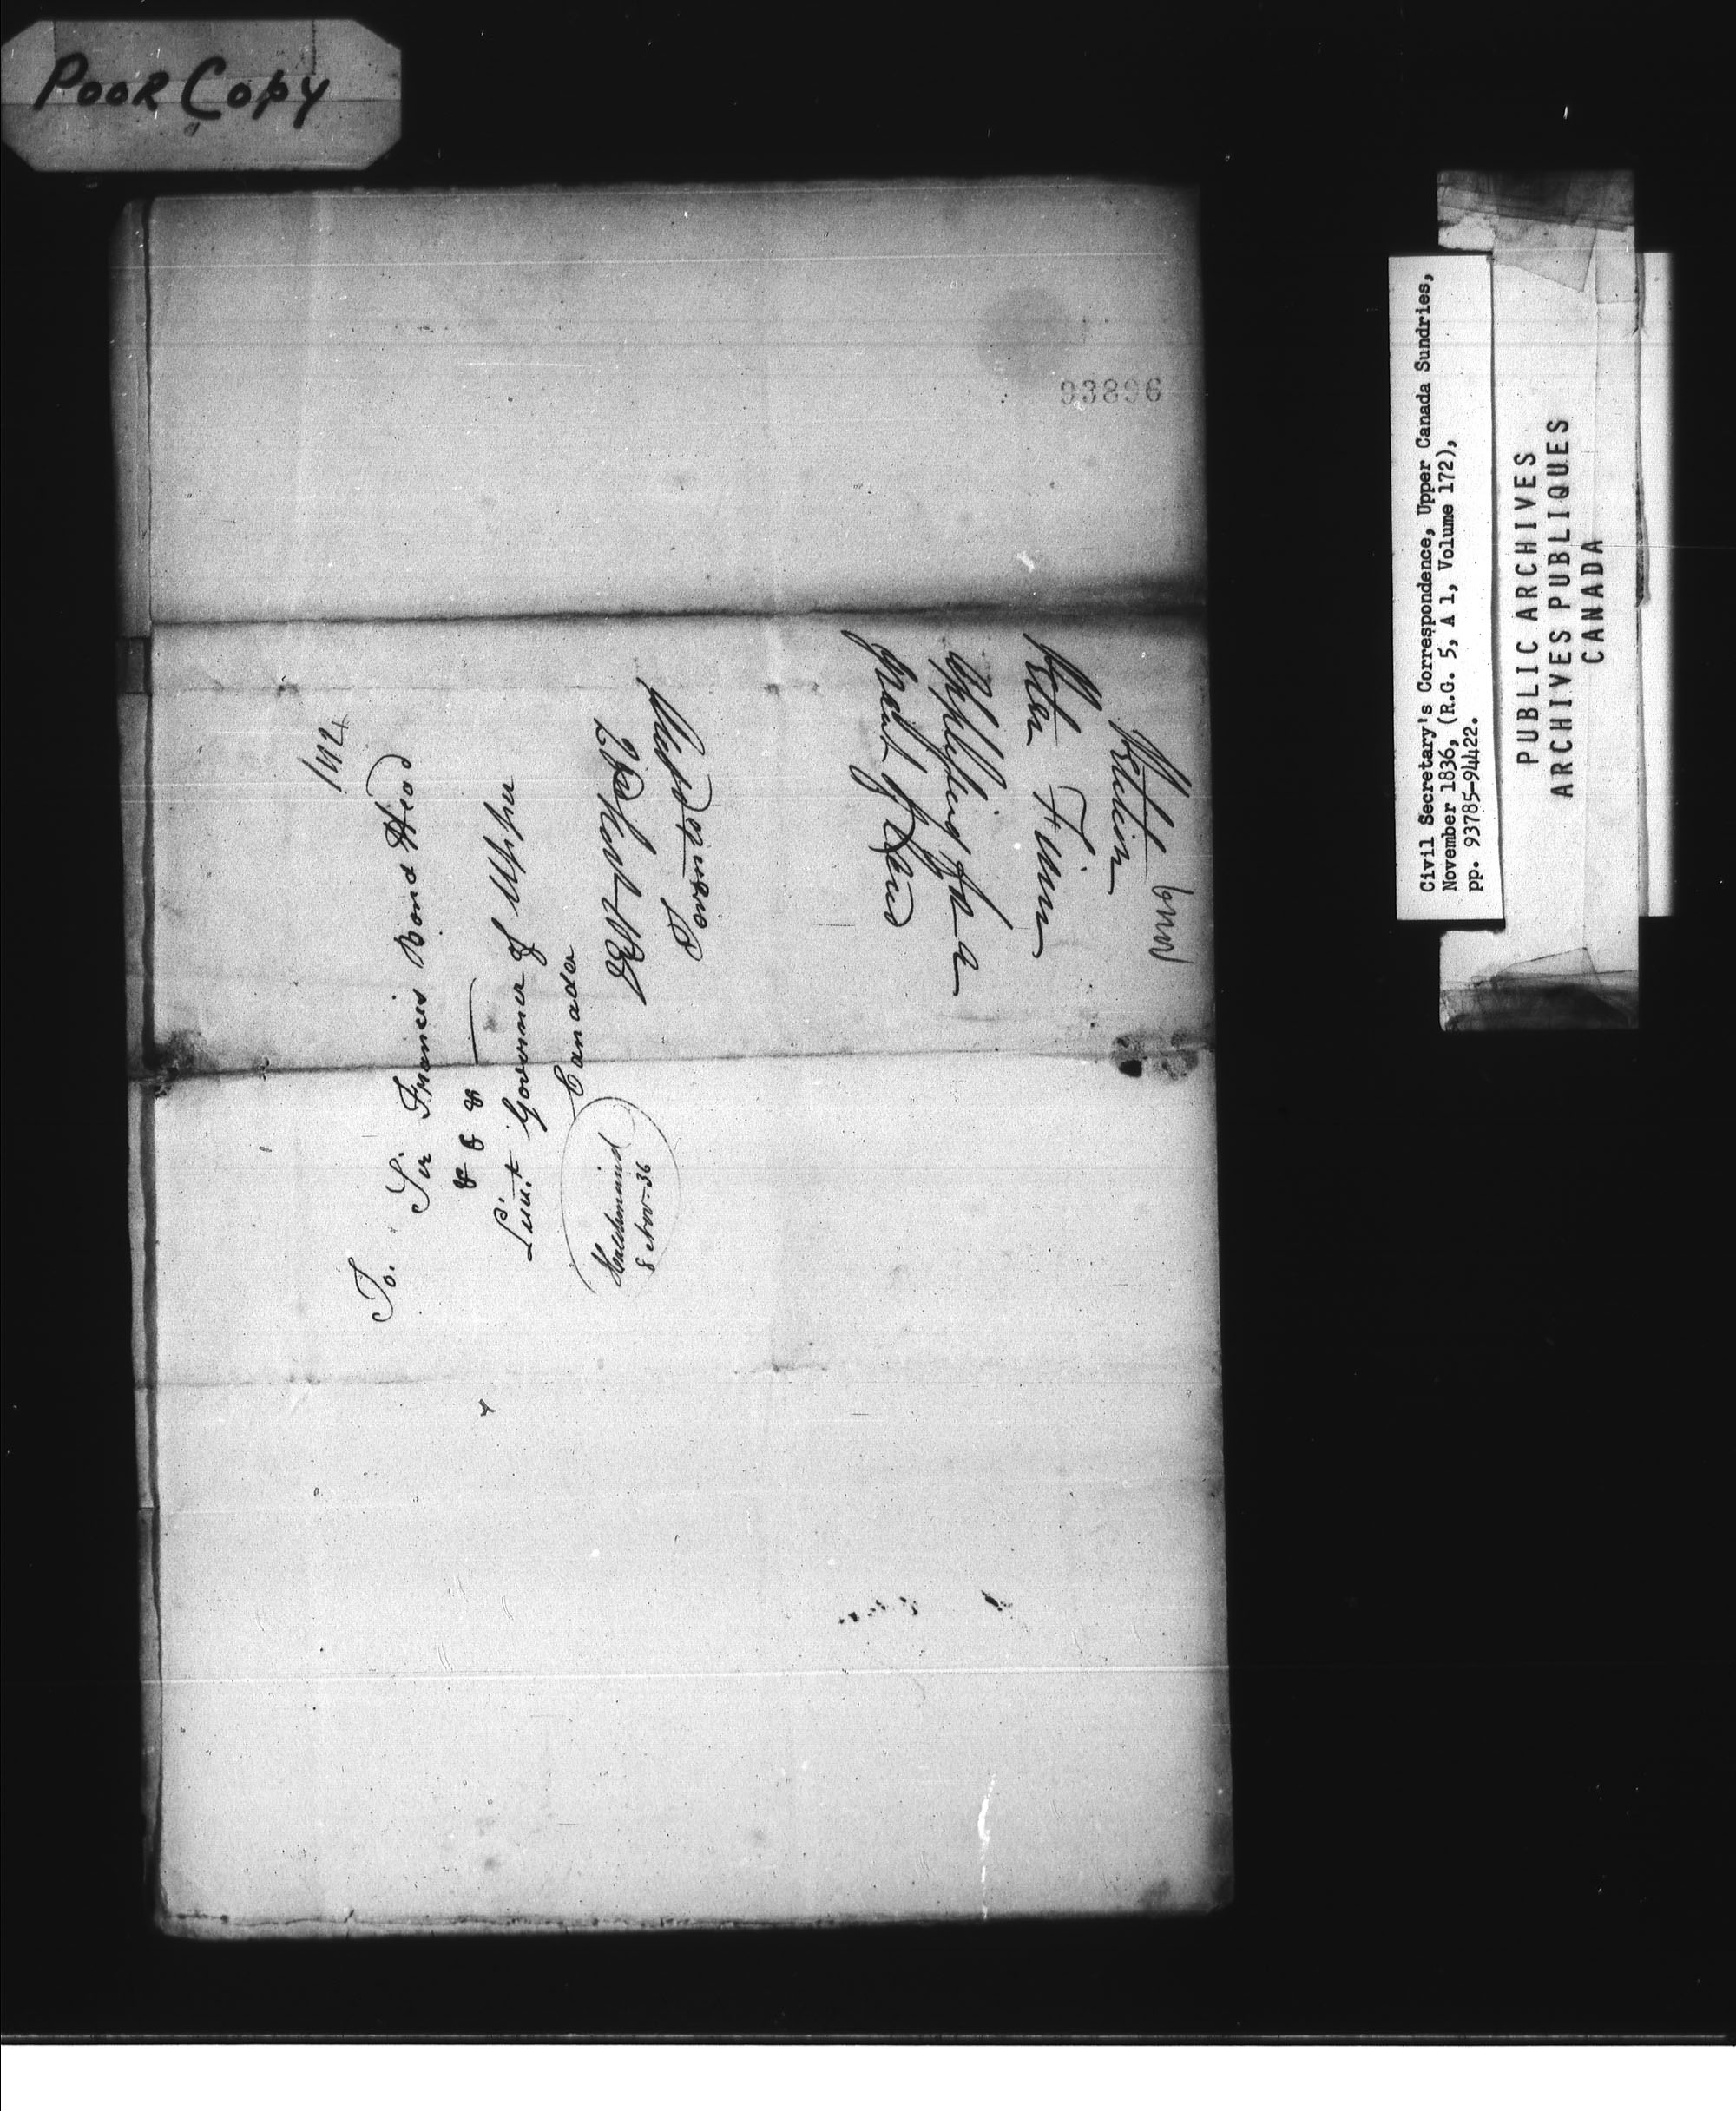 POOR COPY
93896
1424
To.
Sir Francis Bond Head
& & &
Lieut Governor of Upper
Canada
Toronto
Haldimand
8 Nov-36
Petition
Peter
Applying for a
Grant of Land
Civil Secretary's Correspondence, Upper Canada Sundries,
November 1836, (R.G. 5, A 1, Volume 172),
pp. 93785-94422.
PUBLIC ARCHIVES
ARCHIVES PUBLIQUES
CANADA